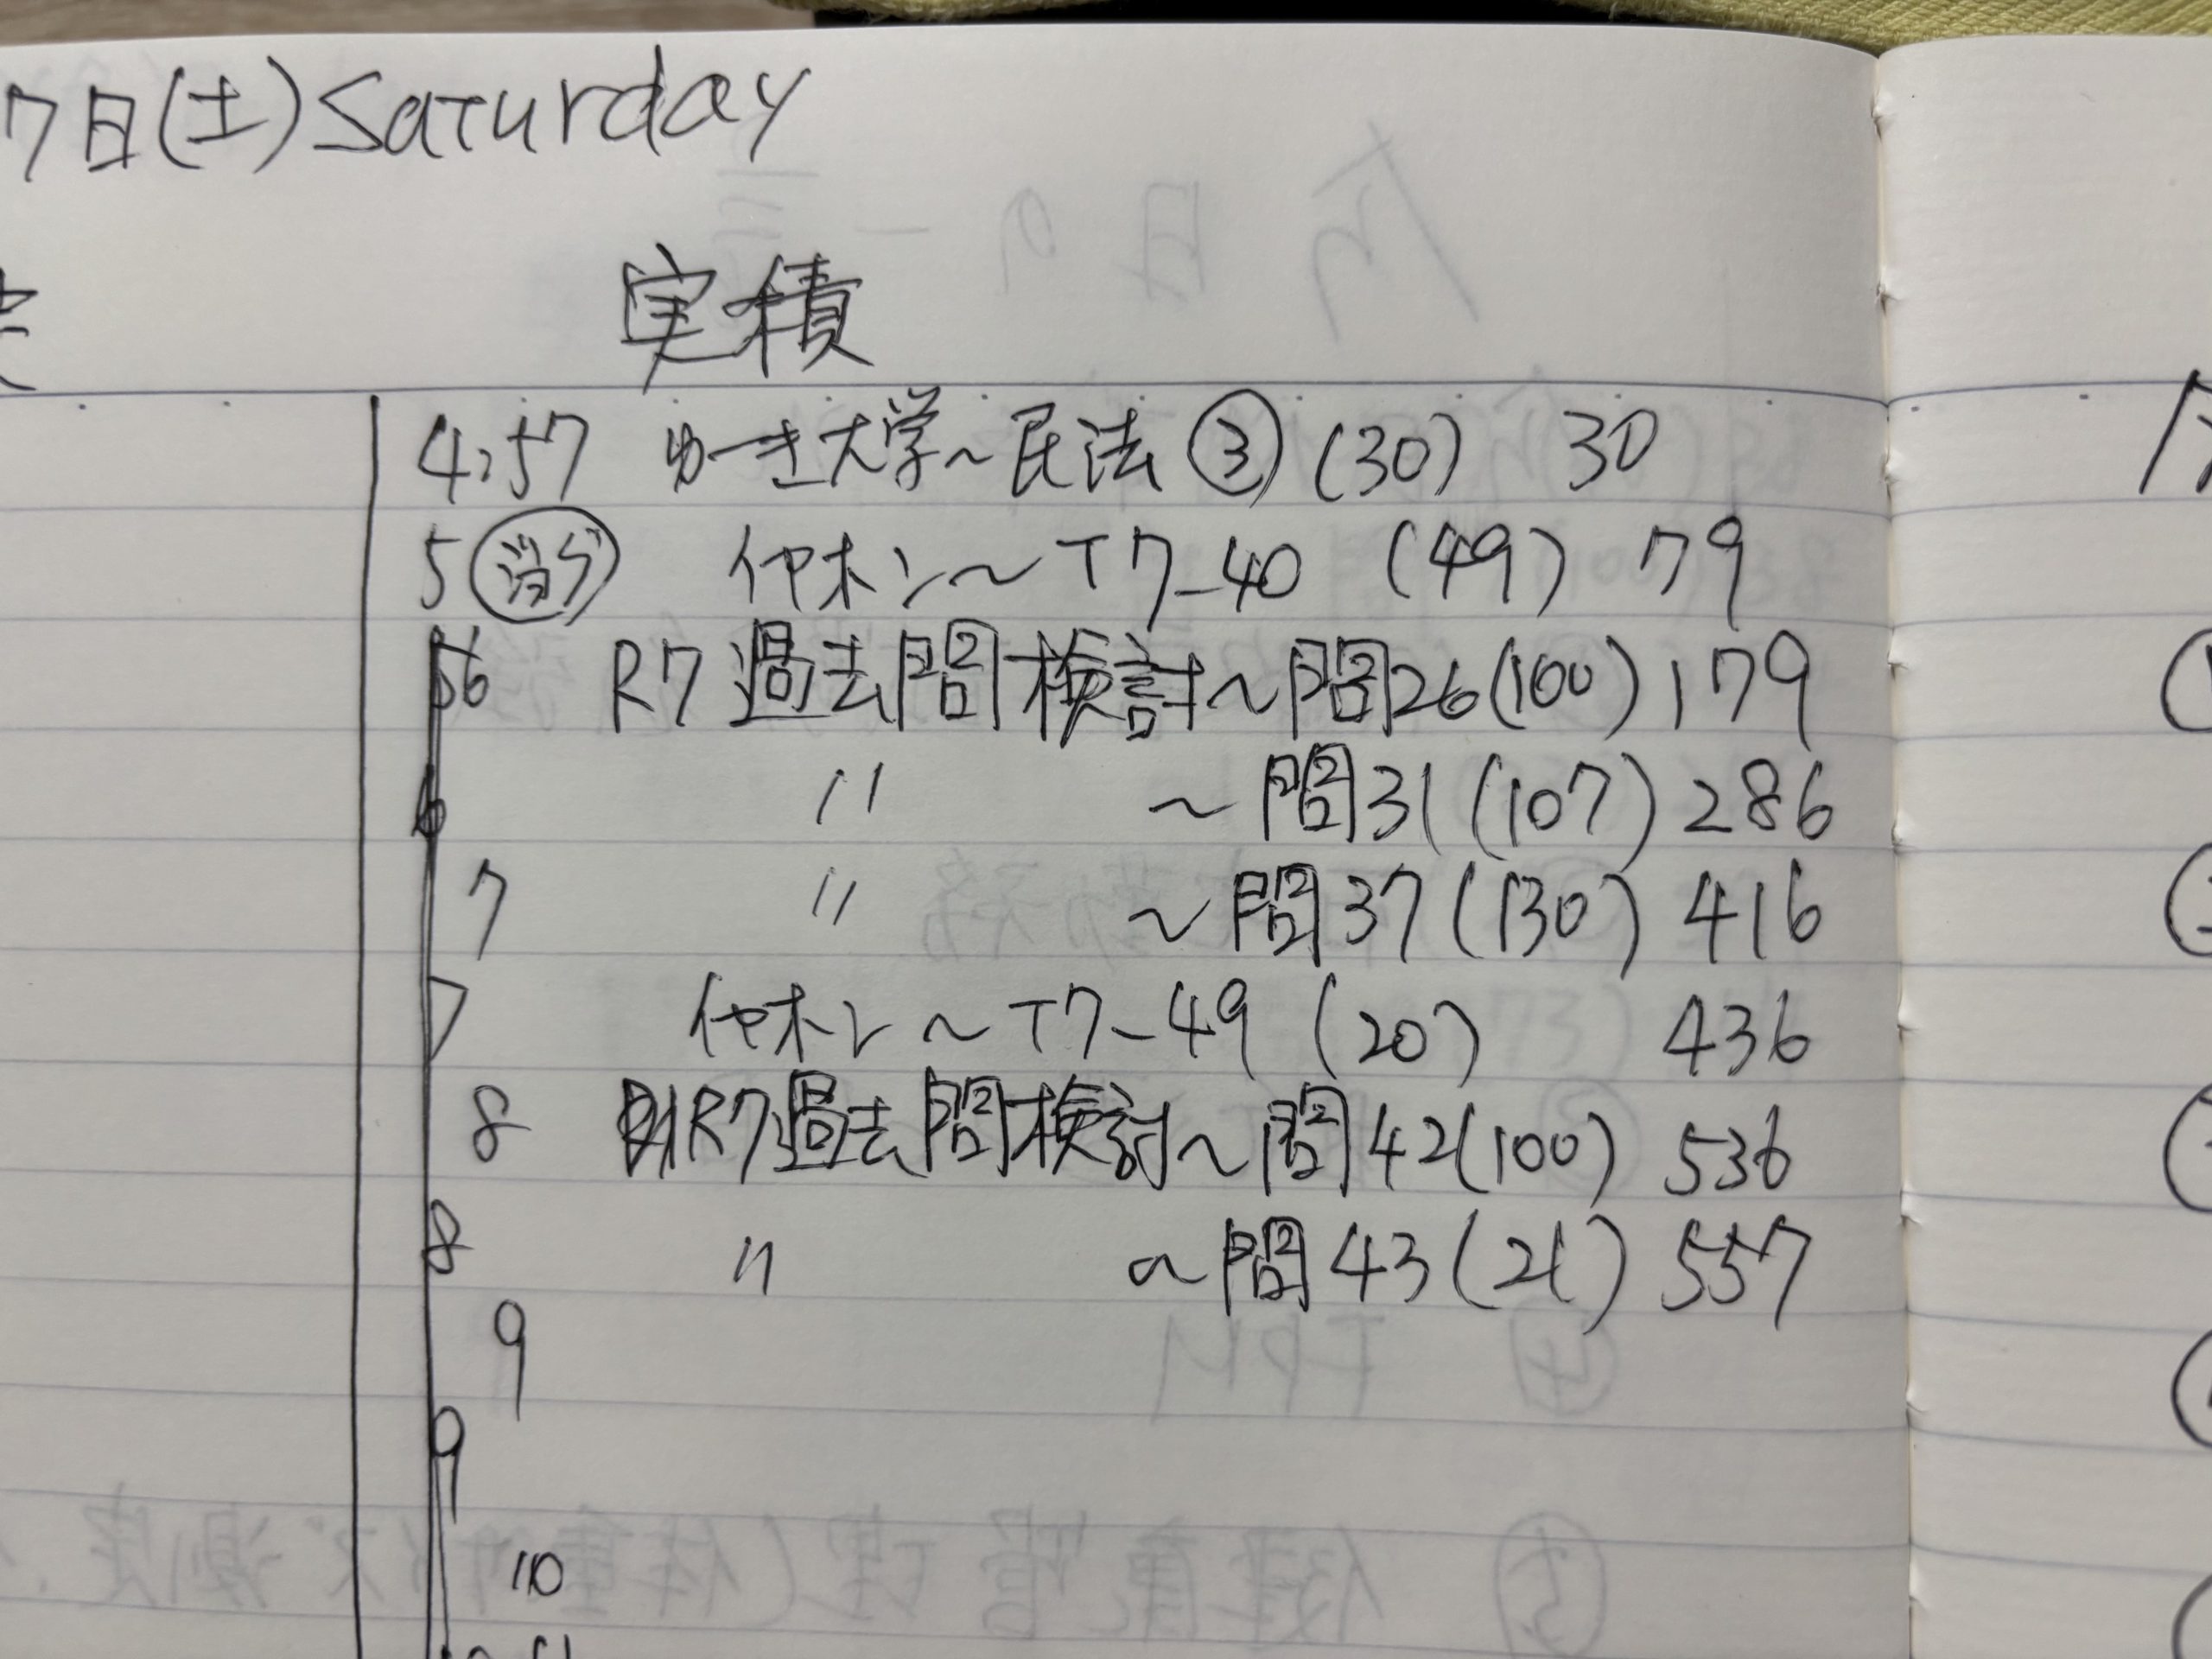 7日(土) Saturday
実積
4:57 ゆーき大学~民法③(30) 30
5 イヤホン~T7-40 (49) 79
56 R7過去問検討~問26(100) 179
6 〃 ~問31(107) 286
7 〃 ~問37(130) 416
7 イヤホン~T7-49 (20) 436
8 R7過去問検討~問42(100) 536
8 〃 ~問43(21) 557
9
9
10